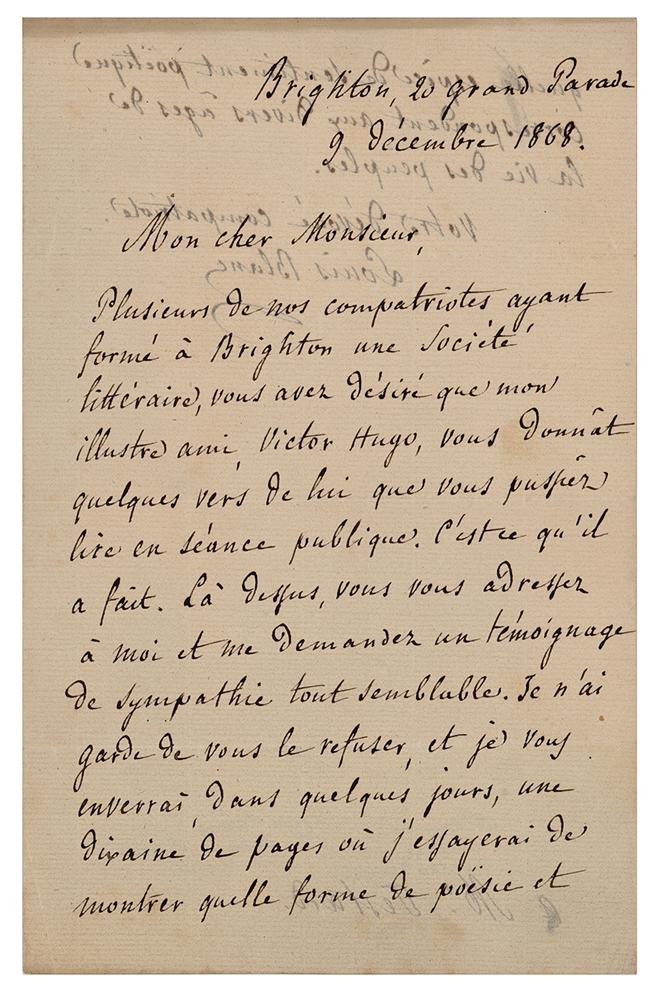 Brighton, 20 Grand Parade
9 décembre 1868.
Mon cher Monsieur,
Plusieurs de nos compatriotes ayant
formé à Brighton une Société
littéraire, vous avez désiré que mon
illustre ami, Victor Hugo, vous donnât
quelques vers de lui que vous pussiez
lire en séance publique. C'est ce qu'il
a fait. Là dessus, vous vous adressez
à moi et me demandez un témoignage
de sympathie tout semblable. Je n'ai
garde de vous le refuser, et je vous
enverrai, dans quelques jours, une
dixaine de pages où j'essayerai de
montrer quelle forme de poësie et
quelle espèce de sentiment poëtique
correspondent aux divers âges de
la vie des peuples.
Votre dévoué compatriote.
Louis Blanc